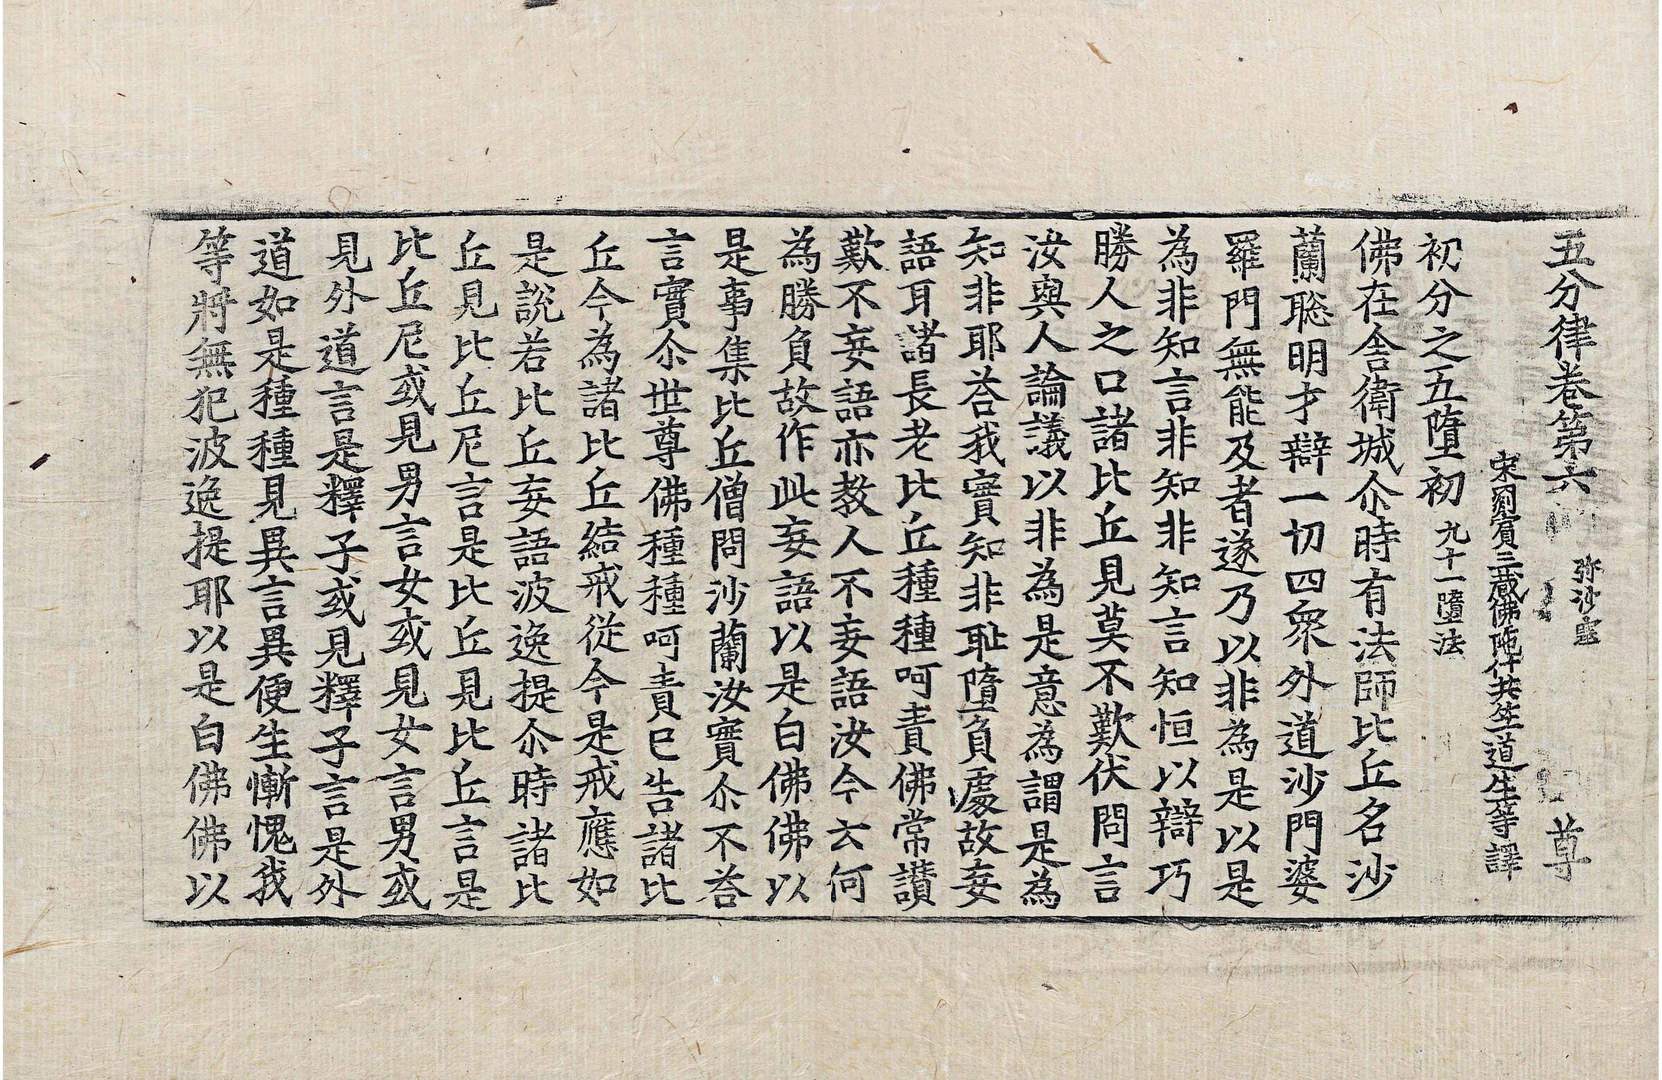 五分律卷第六 弥沙塞 尊
宋罽賓三藏佛陁什共竺道生等譯
初分之五墮初 九十一墮法
佛在舍衛城尒時有法師比丘名沙
蘭聡明才辯一切四衆外道沙門婆
羅門無能及者遂乃以非為是以是
為非知言非知非知言知恒以辯巧
勝人之口諸比丘見莫不歎伏問言
汝與人論議以非為是意為謂是為
知非耶荅我實知非恥墮負處故妄
語耳諸長老比丘種種呵責佛常讃
歎不妄語亦教人不妄語汝今云何
為勝負故作此妄語以是白佛佛以
是事集比丘僧問沙蘭汝實尒不荅
言實尒世尊佛種種呵責已告諸比
丘今為諸比丘結戒從今是戒應如
是說若比丘妄語波逸提尒時諸比
丘見比丘尼言是比丘見比丘言是
比丘尼或見男言女或見女言男或
見外道言是釋子或見釋子言是外
道如是種種見異言異便生慚愧我
等將無犯波逸提耶以是白佛佛以